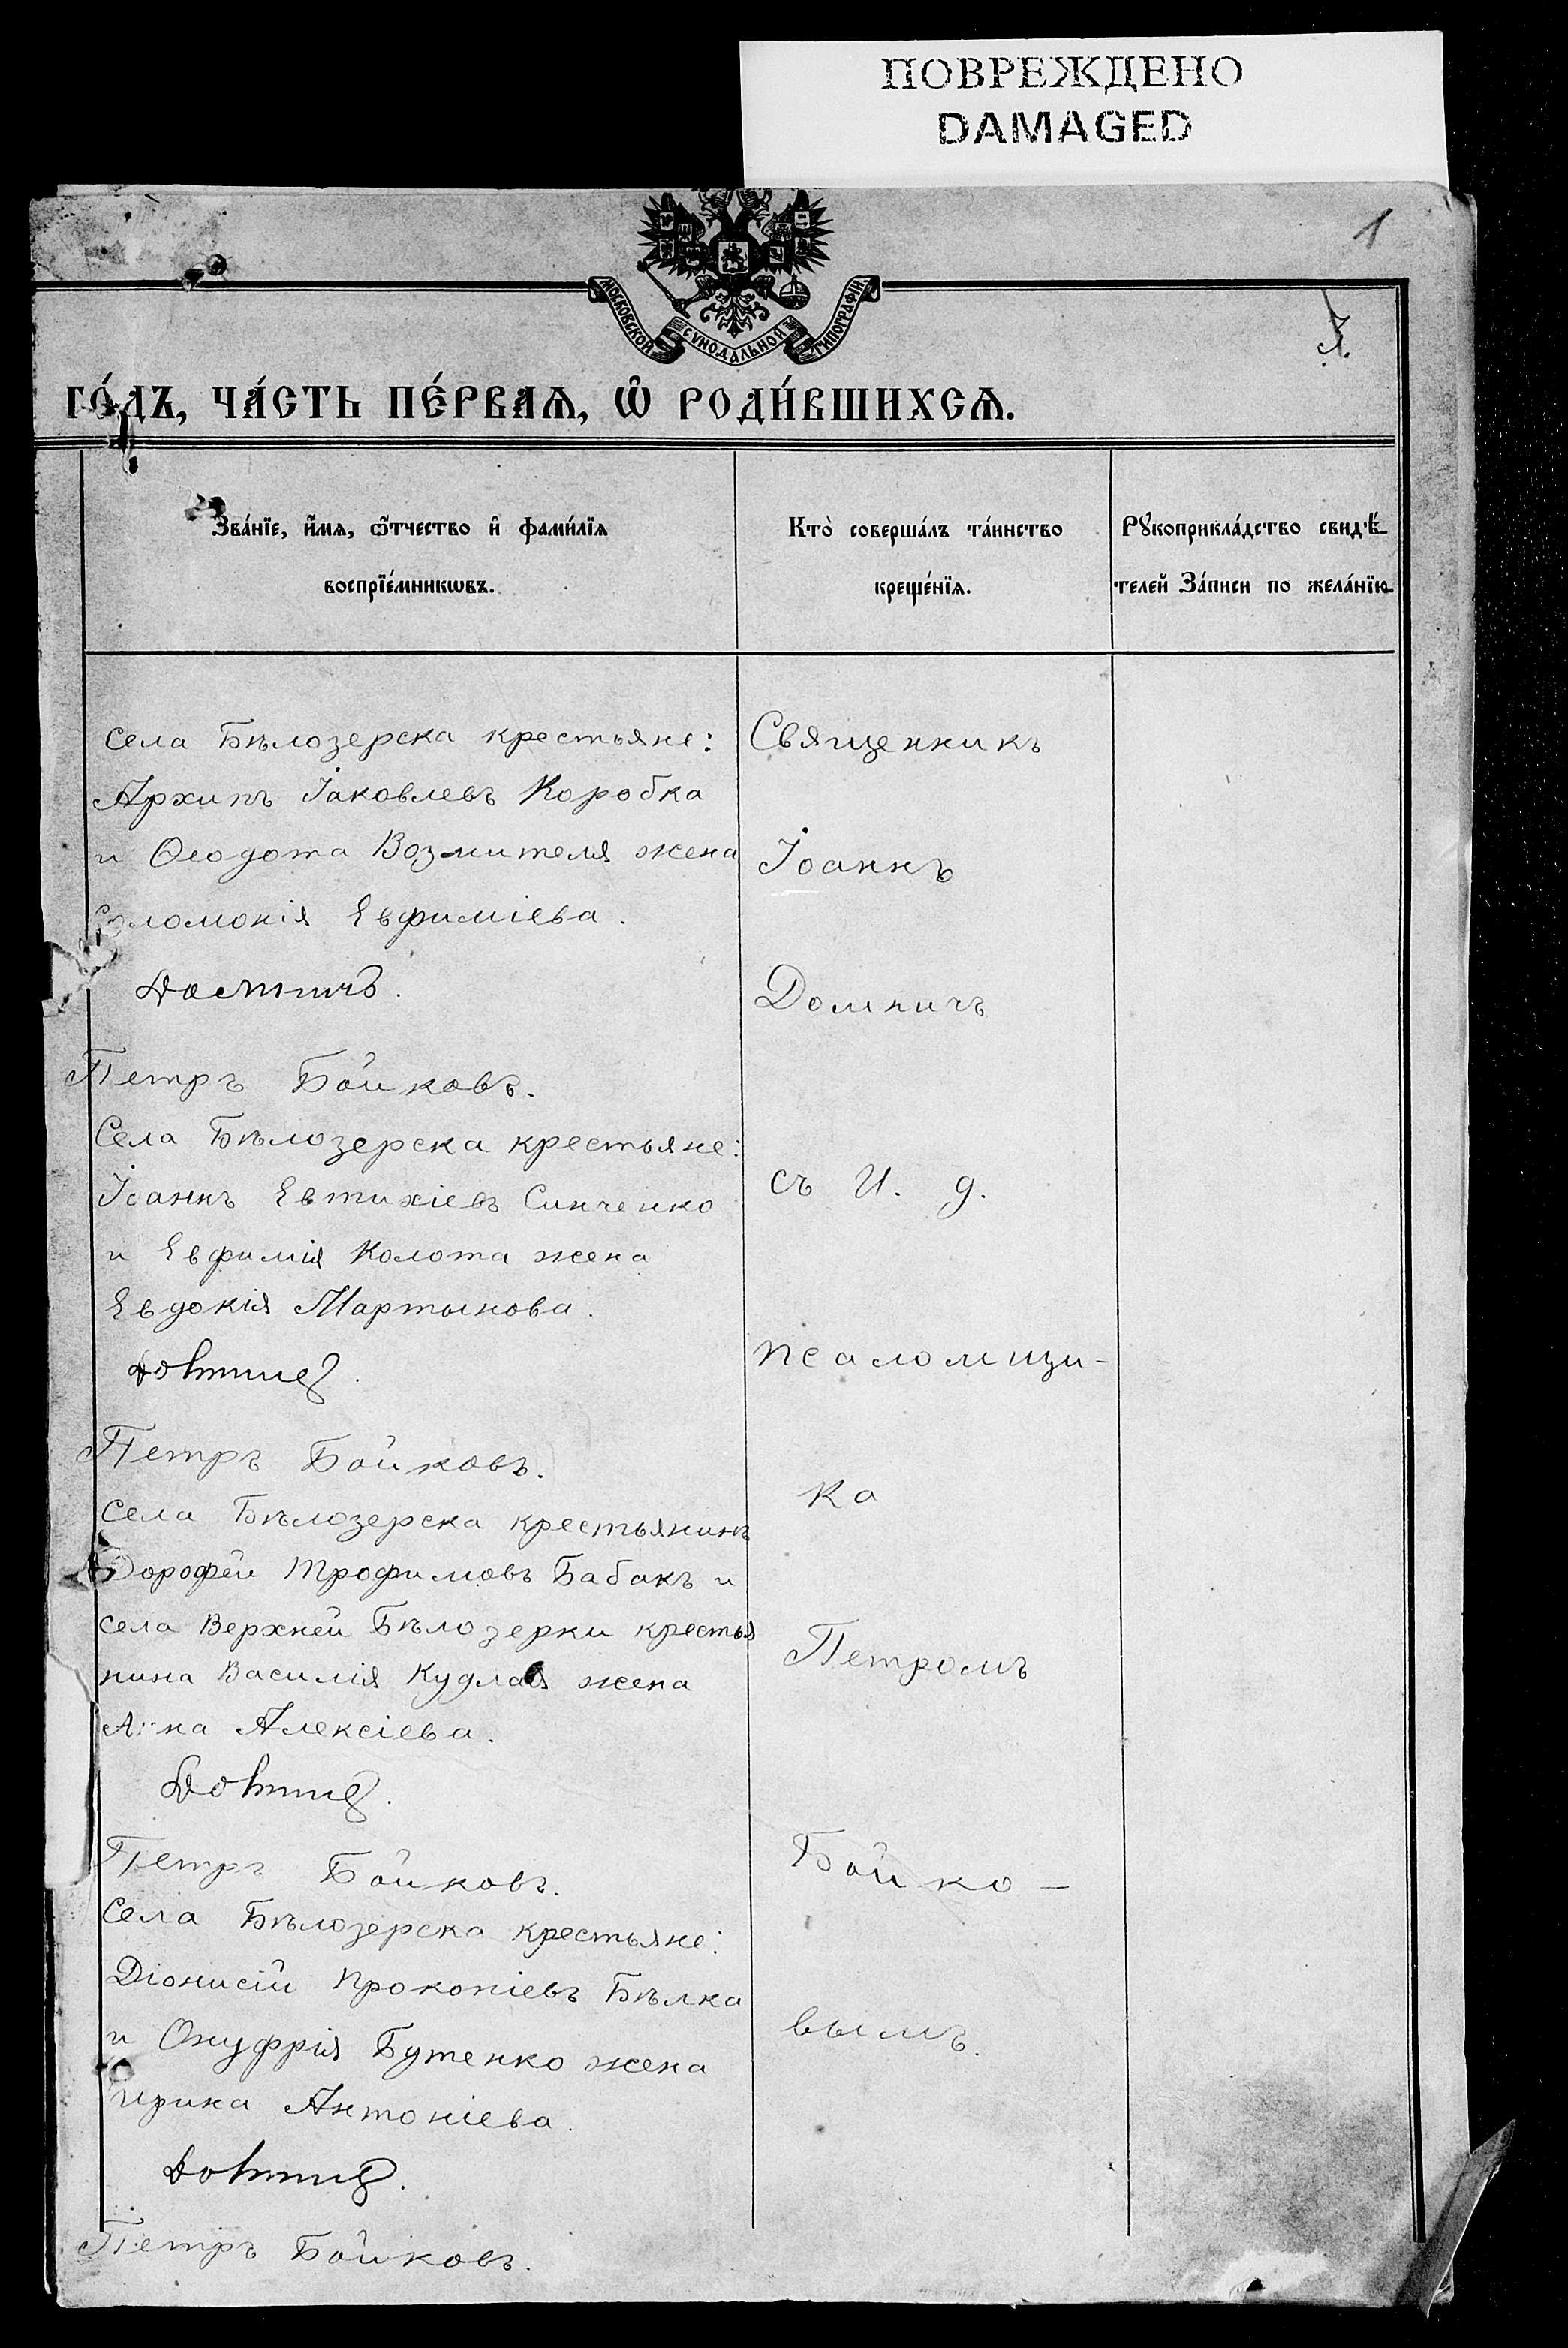 ПОВРЕЖДЕНО
DAMAGED
1
МОСКОВСКОЙ СѴНОДАЛЬНОЙ ТИПОГРАФІИ
ГО́ДЪ, ЧА́СТЬ ПЕ́РВАѦ, Ѽ РОДИ́ВШИХСѦ.
Зва́нїе, и҆́мѧ, ѻ҆́тчество и҆ фами́лїѧ
воспрїе́мникѡвъ.
Кто̀ соверша́лъ та́инство
креще́нїѧ.
Рꙋкоприкла́дство свидѣ́-
телей За́писи по жела́нїю.
села Бѣлозерска крестьяне:
Архипъ Іаковлевъ Коробка
и Ѳеодота Возмителя жена
Соломонія Евфиміева.
Домничъ.
Петръ Бойковъ.
Села Бѣлозерска крестьяне:
Іоаннъ Евтихіевъ Синченко
и Евфимія Колота жена
Евдокія Мартынова.
Домнич.
Петръ Бойковъ.
Села Бѣлозерска крестьянинъ
Дорофей Трофимовъ Бабакъ и
села Верхней Бѣлозерки крестья
нина Василія Кудлая жена
Анна Алексіева.
Домнич.
Петръ Бойковъ.
Села Бѣлозерска крестьяне:
Діонисій Прокопіевъ Бѣлка
и Онуфрія Бутенко жена
Ирина Антоніева.
Домнич.
Петръ Бойковъ.
Священникъ
Іоаннъ
Домничъ
съ И. д.
псаломщи-
ка
Петромъ
Бойко-
вымъ.